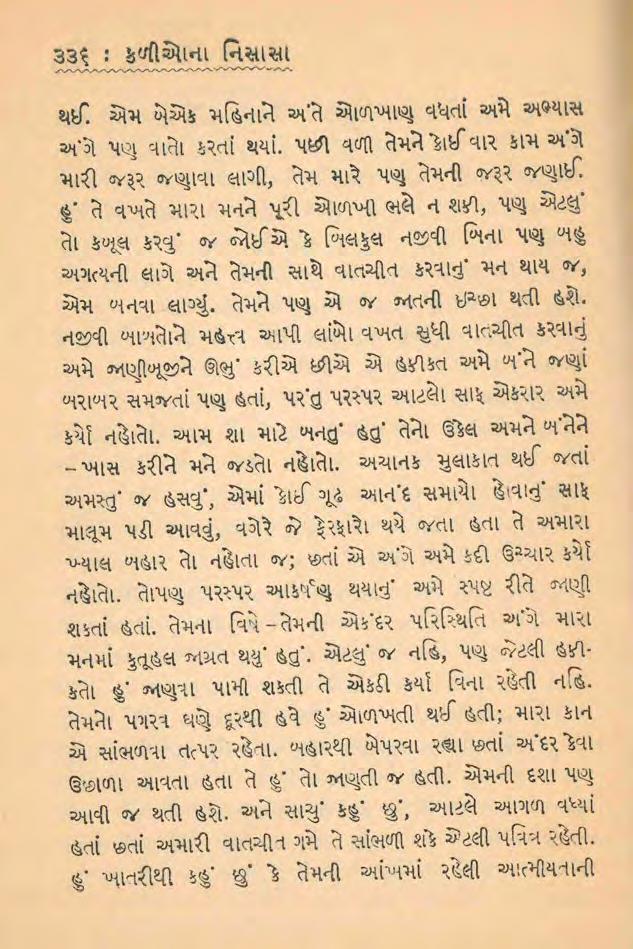 ૩૩૬ : કળીઓના નિસાસા
થઈ. એમ બેએક મહિનાને અંતે ઓળખાણ વધતાં અમે અભ્યાસ
અંગે પણ વાતો કરતાં થયાં. પછી વળી તેમને કોઈ વાર કામ અંગે
મારી જરૂર જણાવા લાગી, તેમ મારે પણ તેમની જરૂર જણાઈ.
હું તે વખતે મારા મનને પૂરી ઓળખી ભલે ન શકી, પણ એટલું
તો કબૂલ કરવું જ જોઈએ કે બિલકુલ નજીવી બિના પણ બહુ
અગત્યની લાગે અને તેમની સાથે વાતચીત કરવાનું મન થાય જ,
એમ બનવા લાગ્યું. તેમને પણ એ જ જાતની ઇચ્છા થતી હશે.
નજીવી બાબતોને મહત્ત્વ આપી લાંબો વખત સુધી વાતચીત કરવાનું
અમે જાણીબૂજીને ઊભું કરીએ છીએ એ હકીકત અમે બંને જણાં
બરાબર સમજતાં પણ હતાં, પરંતુ પરસ્પર આટલો સાફ એકરાર અમે
કર્યો નહોતો. આમ શા માટે બનતું હતું તેનો ઉકેલ અમને બંનેને
–ખાસ કરીને મને જડતો નહોતો. અચાનક મુલાકાત થઈ જતાં
અમસ્તું જ હસવું, એમાં કોઈ ગૂઢ આનંદ સમાયો હોવાનું સાફ
માલૂમ પડી આવવું, વગેરે જે ફેરફારો થયે જતા હતા તે અમારા
ખ્યાલ બહાર તો નહોતા જ; છતાં એ અંગે અમે કદી ઉચ્ચાર કર્યો
નહોતો. તોપણ પરસ્પર આકર્ષણ થયાનું અમે સ્પષ્ટ રીતે જાણી
શકતાં હતાં. તેમના વિષે–તેમની એકંદર પરિસ્થિતિ અંગે મારા
મનમાં કુતૂહલ જાગ્રત થયું હતું. એટલું જ નહિ, પણ જેટલી હકી-
કતો હું જાણવા પામી શકતી તે એકઠી કર્યા વિના રહેતી નહિ.
તેમનો પગરવ ઘણે દૂરથી હવે હું ઓળખતી થઈ હતી; મારા કાન
એ સાંભળવા તત્પર રહેતા. બહારથી બેપરવા રહ્યા છતાં અંદર કેવા
ઉછાળા આવતા હતા તે હું તો જાણતી જ હતી. એમની દશા પણ
આવી જ થતી હશે. અને સાચું કહું છું, આટલે આગળ વધ્યાં
હતાં છતાં અમારી વાતચીત ગમે તે સાંભળી શકે એટલી પવિત્ર રહેતી.
હું ખાતરીથી કહું છું કે તેમની આંખમાં રહેલી આત્મીયતાની